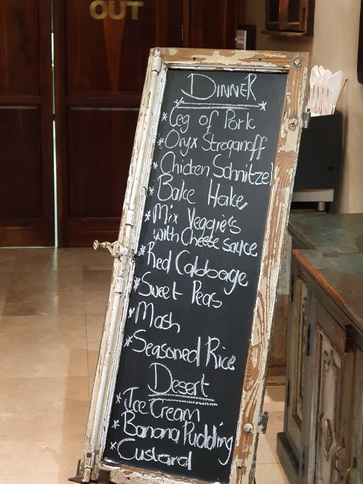 OUT
DINNER
* Leg of Pork
* Oryx Stroganoff
* Chicken Schnitzel
* Bake Hake
* Mix Veggie's
with Cheese sauce
* Red Cabbage
* Sweet Peas
* Mash
* Seasoned Rice
Desert
* Ice Cream
* Banana Pudding
* Custard